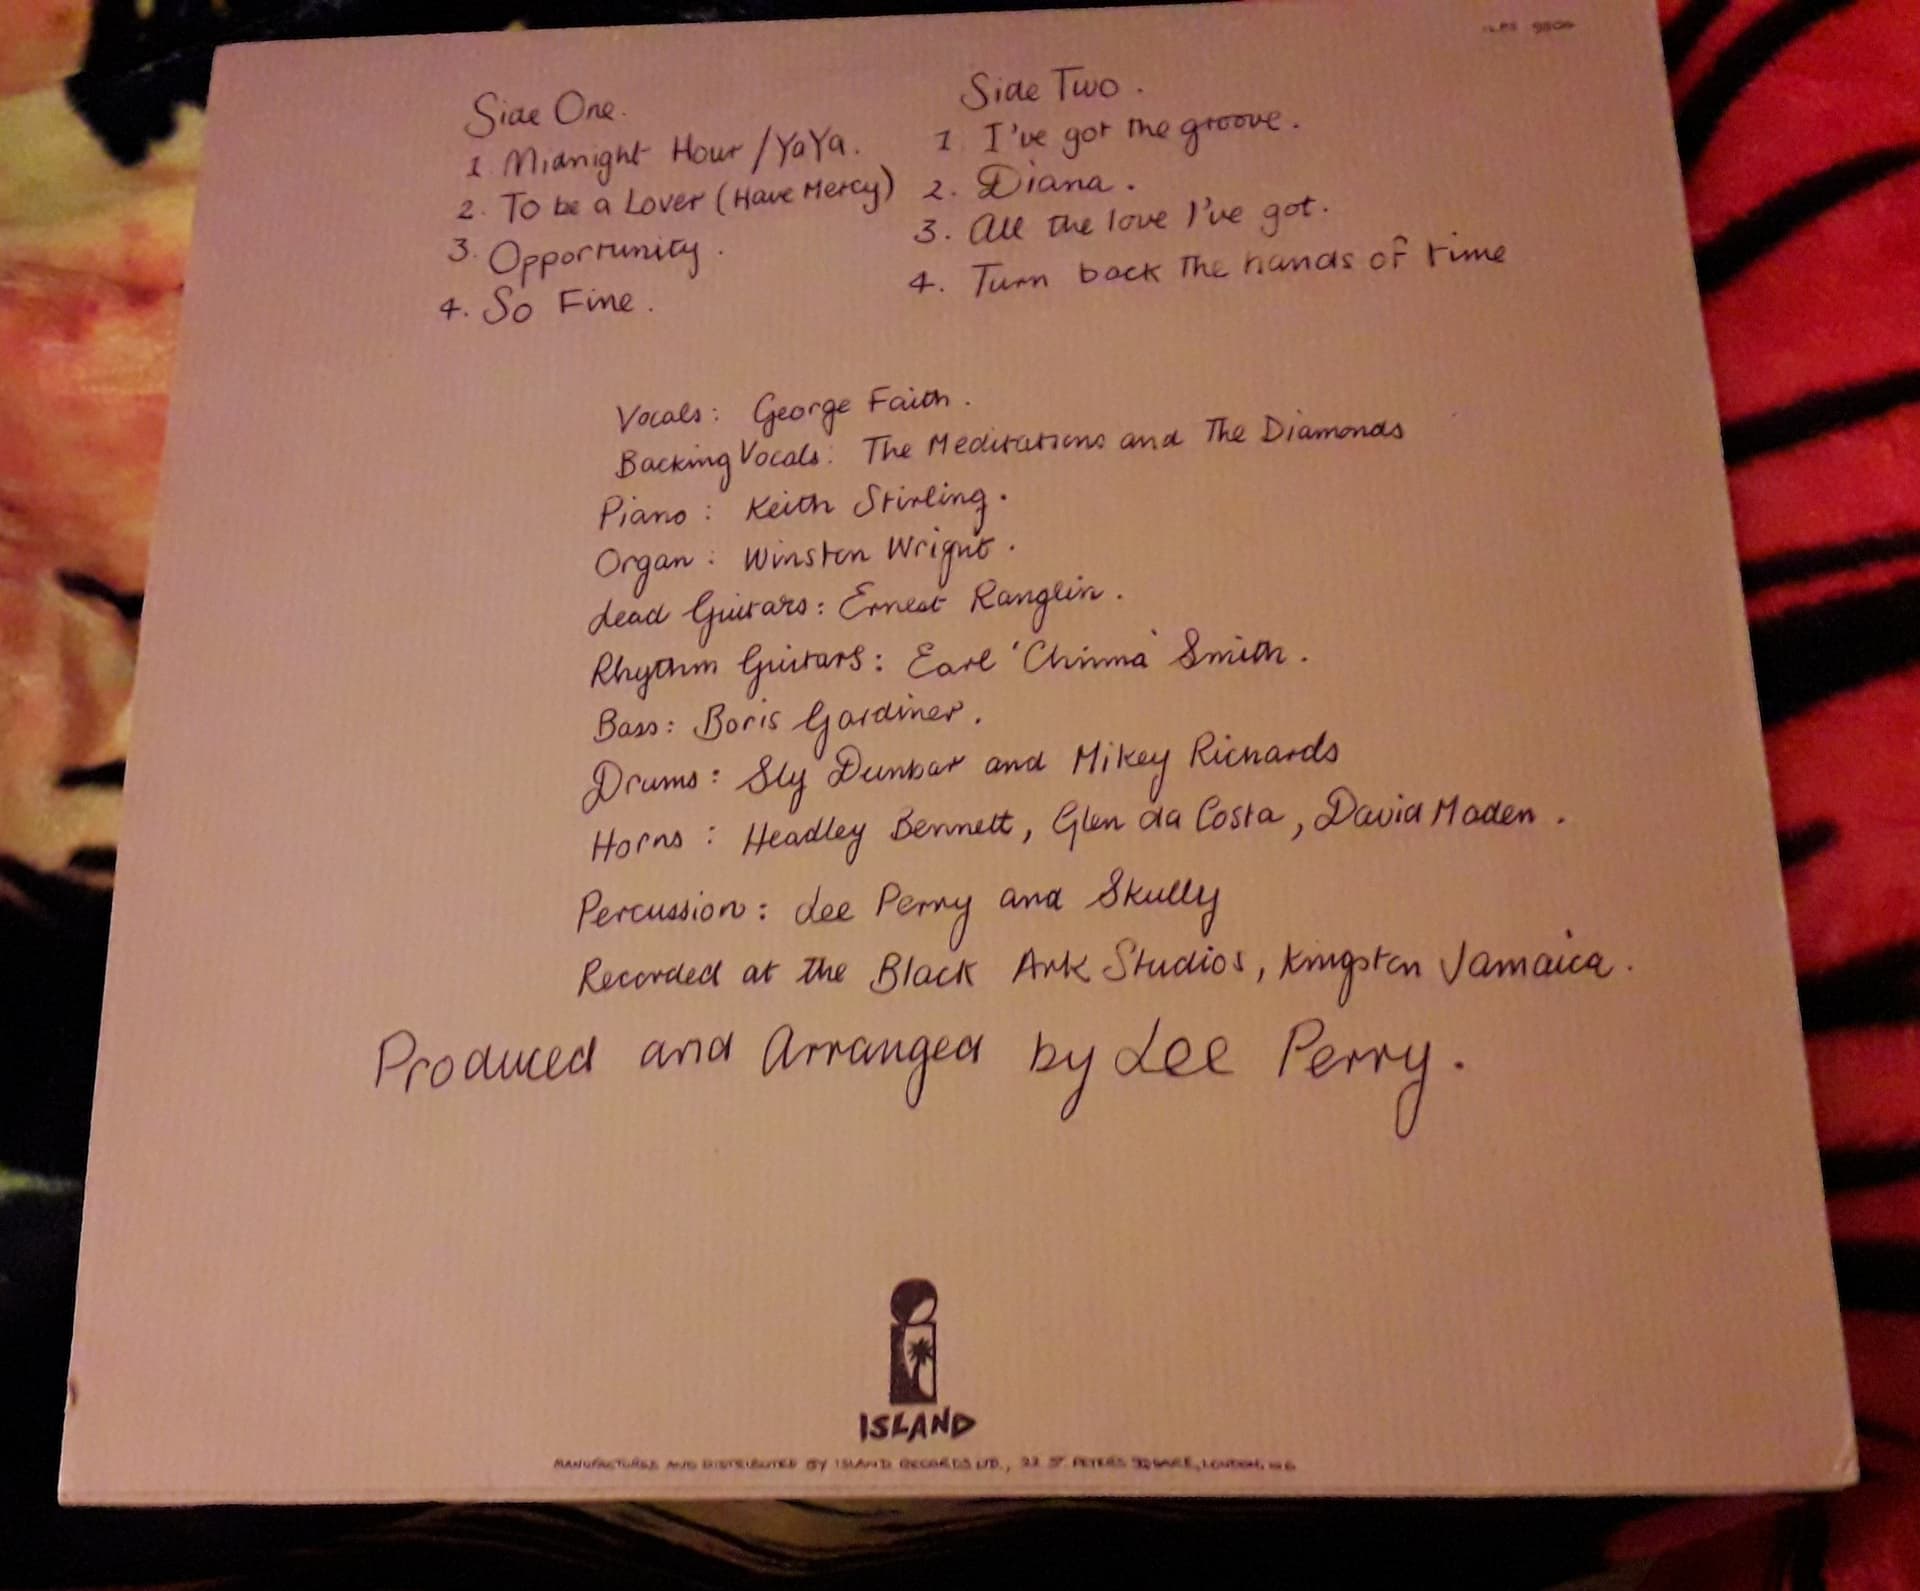 ILPS 9504
Side One.
1 Midnight Hour / YaYa.
2. To be a Lover (Have Mercy)
3. Opportunity.
4. So Fine.
Side Two.
1 I've got the groove.
2. Diana.
3. All the love I've got.
4. Turn back The hands of time
Vocals: George Faith.
Backing Vocals: The Meditations and The Diamonds
Piano: Keith Stirling.
Organ: Winston Wright.
Lead Guitars: Ernest Ranglin.
Rhythm Guitars: Earl 'Chinna' Smith.
Bass: Boris Gardiner.
Drums: Sly Dunbar and Mikey Richards
Horns: Headley Bennett, Glen da Costa, David Maden.
Percussion: Lee Perry and Skully
Recorded at the Black Ark Studios, Kingston Jamaica.
Produced and Arranged by Lee Perry.
ISLAND
MANUFACTURED AND DISTRIBUTED BY ISLAND RECORDS LTD., 22 ST PETERS SQUARE, LONDON, W6